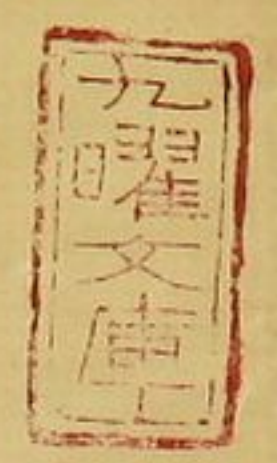 九曜文庫